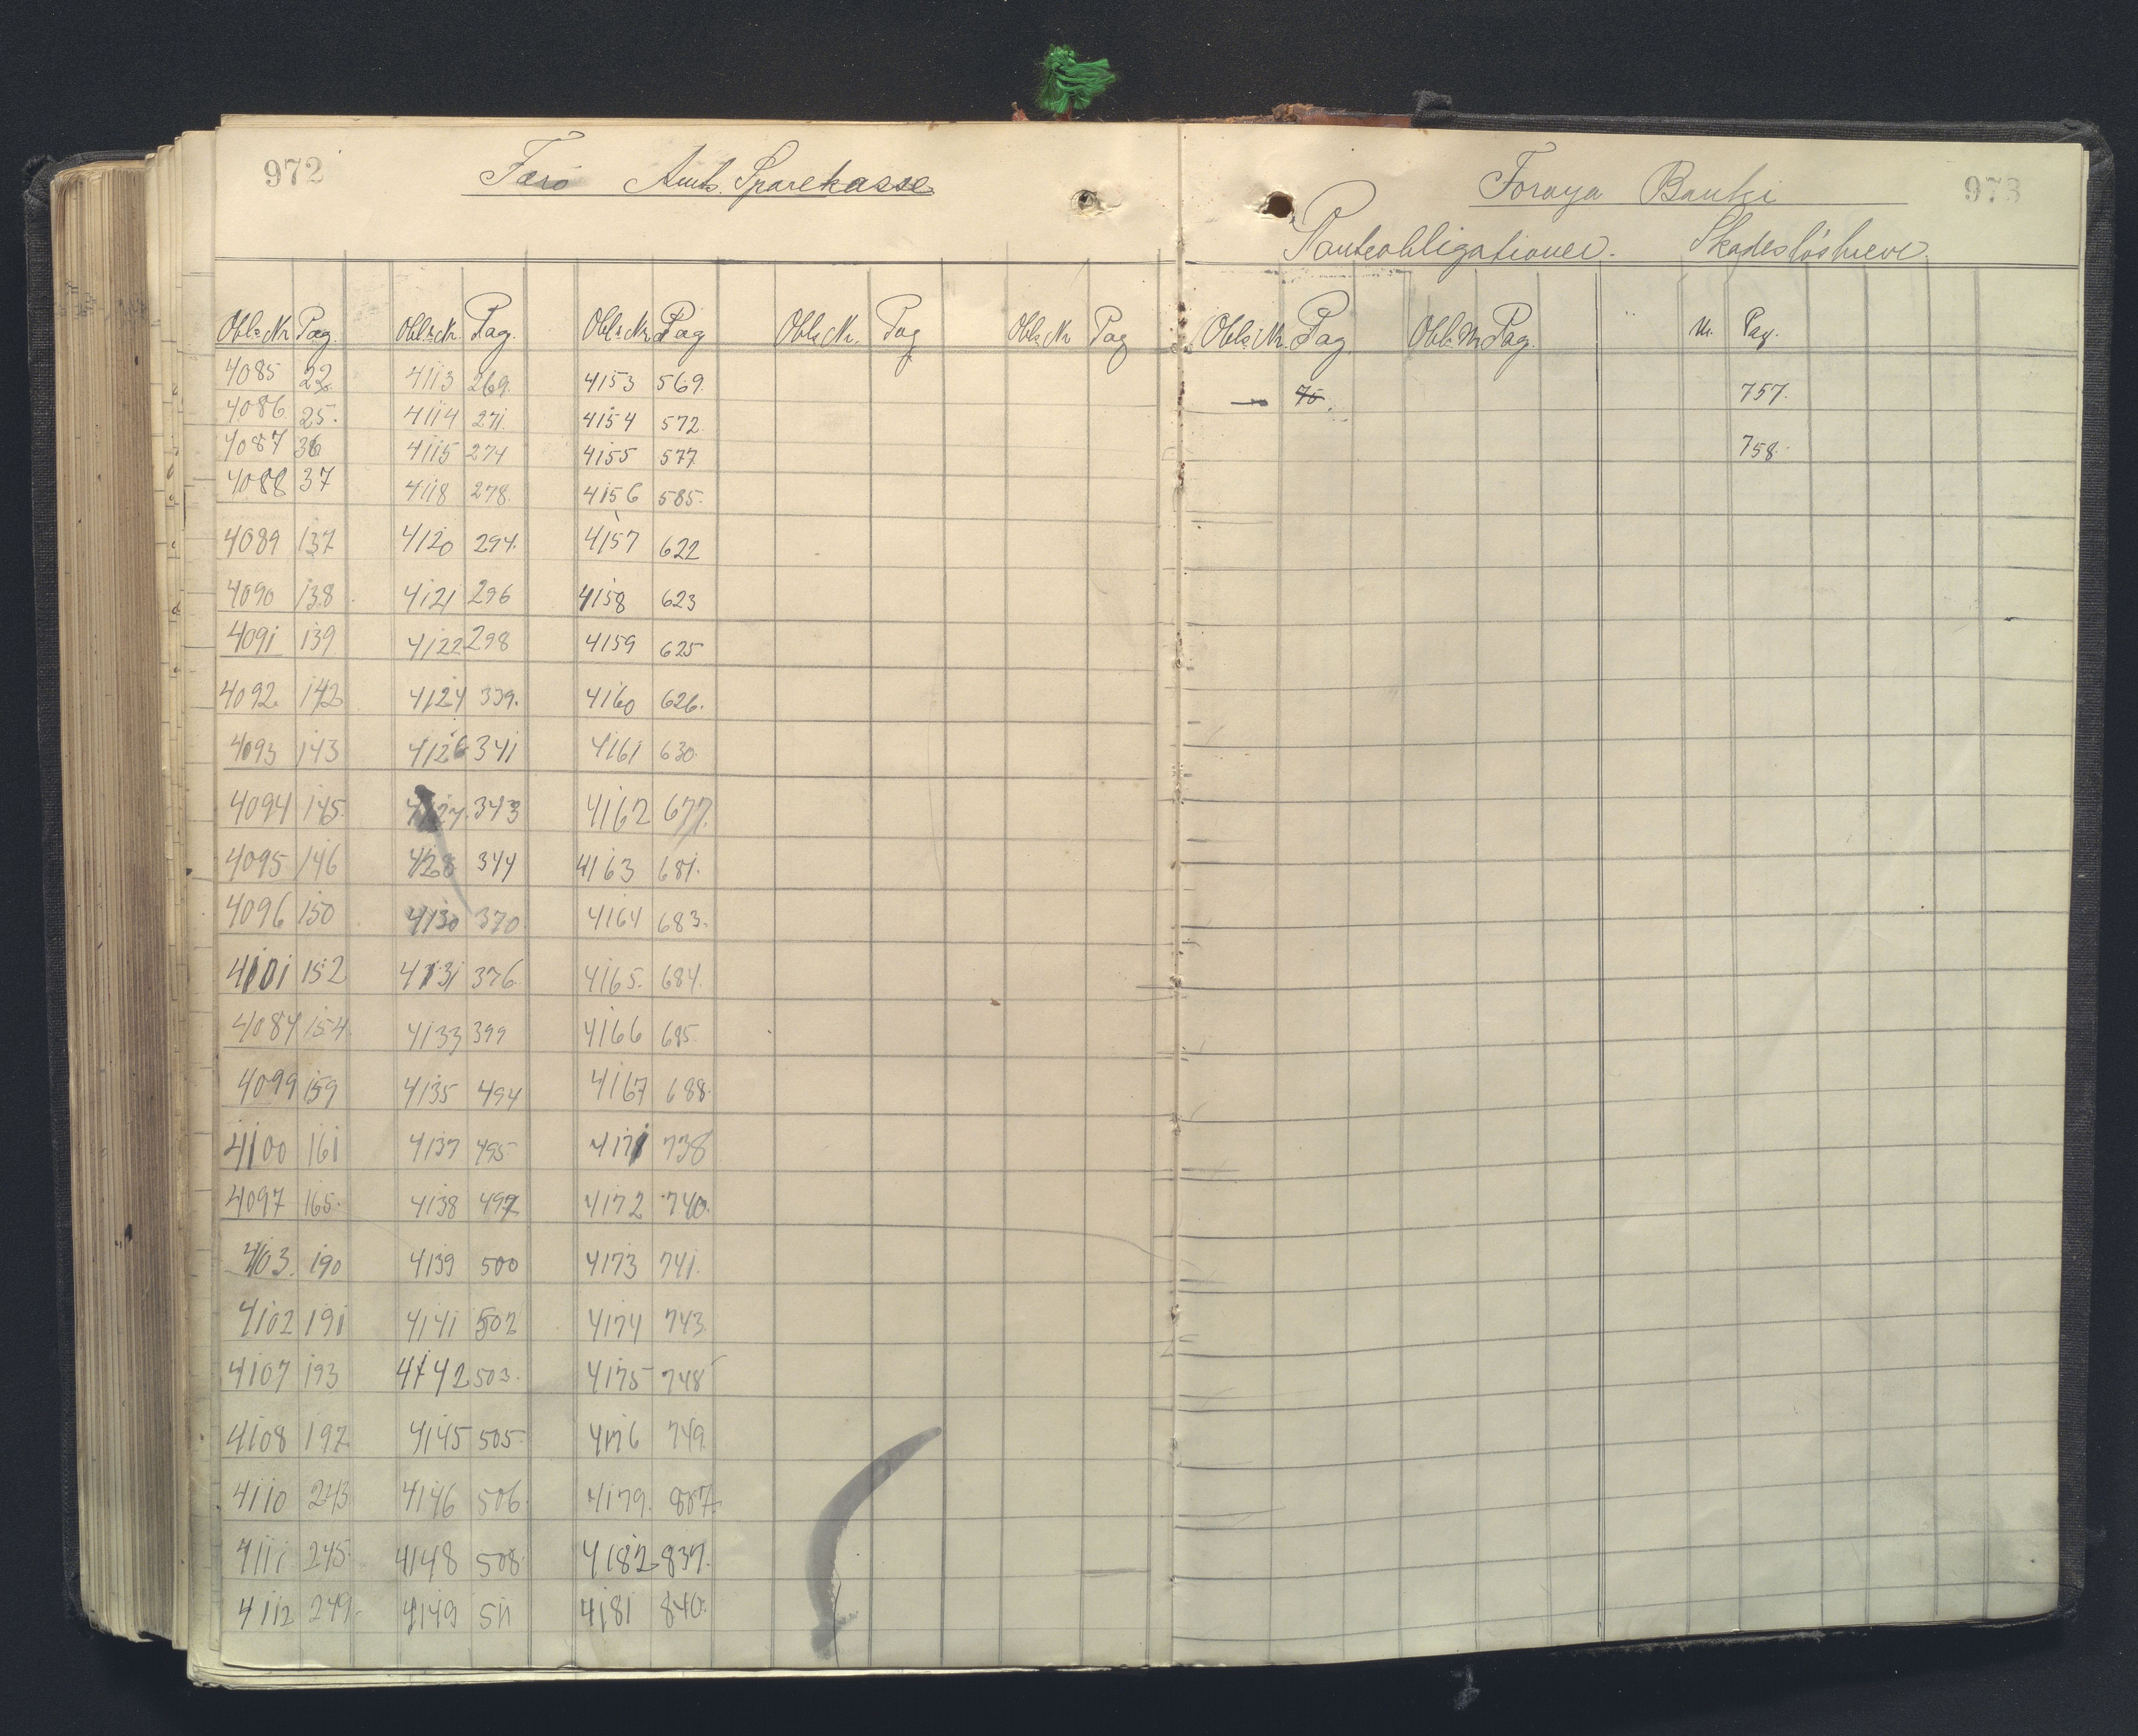 972
Færø Amts. Sparekasse
Obl.Nr Pag. Obl.Nr. Pag. Obl.Nr Pag Obl. Nr. Pag Obl. Nr Pag
4085 22 4113 269. 4153 569.
4086 25. 4114 271. 4154 572
4087 36 4115 274 4155 577
4088 37 4118 278. 4156 585.
4089 137 4120 294. 4157 622
4090 138 4121 296 4158 623
4091 139 4122 298 4159 625
4092 142 4124 339. 4160 626.
4093 143 4126 341 4161 630.
4094 145. 4127. 343 4162 677.
4095 146 4128 344 4163 681.
4096 150 4130 370 4164 683.
4101 152 4131 376 4165. 684.
4084 154. 4133 399 4166 685.
4099 159 4135 494 4167 688.
4100 161 4137 495 4171 738
4097 165. 4138 497 4172 740.
4103. 190 4139 500 4173 741.
4102 191 4141 502 4174 743.
4107 193 4142 503. 4175 748
4108 197 4145 505. 4176 749
4110 243 4146 506. 4179.
4111 245. 4148 508. 4182 837.
4112 249. 4149 511 4181 840.
973
Føroya Banki
Panteobligationer. Skadesløsbreve.
Obl. Nr. Pag. Obl. Nr Pag. Nr. Pag.
— 75. 757.
758.